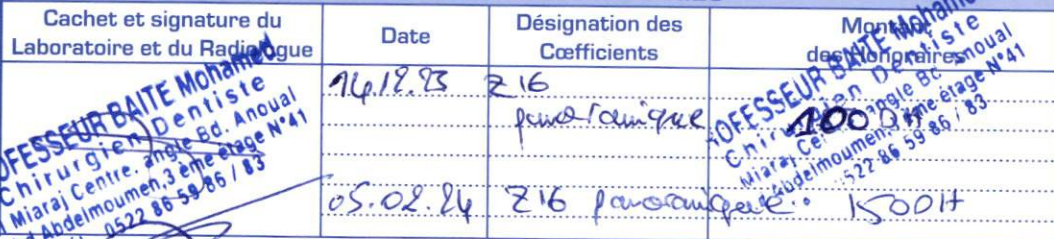 Cachet et signature du
Laboratoire et du Radiologue
Date
Désignation des
Cœfficients
Montant
des Honoraires
PROFESSEUR BAITE Mohamed
Chirurgien Dentiste
Miaraj Centre. angle Bd. Anoual
Bd Abdelmoumen,3 ème étage N°41
0522 86 59 86 / 83
14.12.23 Z16
panoramique 100DH
05.02.24 Z16 panoramique. 150DH
OFESSEUR BAITE Mohamed
Chirurgien Dentiste
Miaraj Cen angle Bd. Anoual
Abdelmoumen,3 ème étage N°41
522 86 59 86 / 83